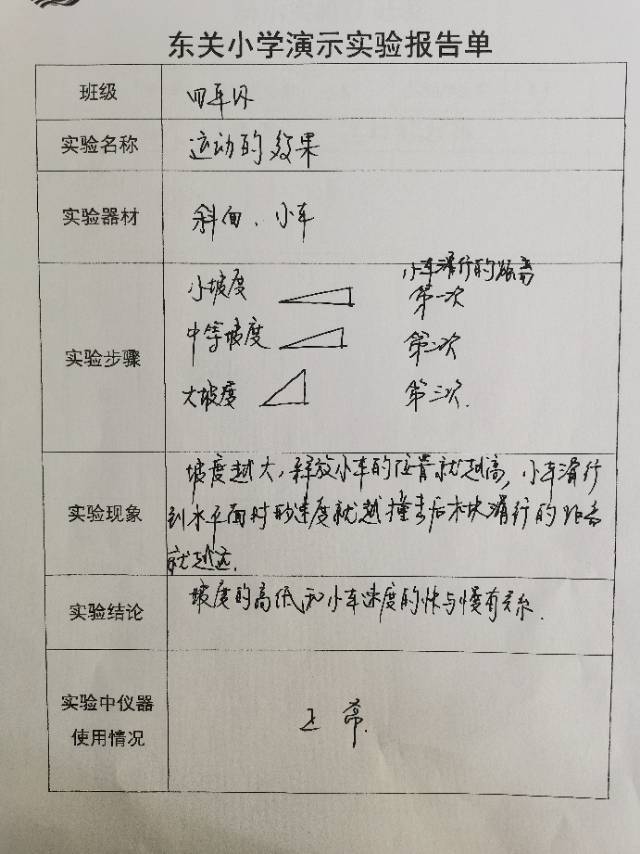 东关小学演示实验报告单
班级 四年
实验名称 运动的效果
实验器材 斜面、小车
小车滑行的距离
小坡度 第一次
中等坡度 第二次
实验步骤
大坡度 第三次.
坡度越大,释放小车的位置就越高,小车滑行
实验现象 到水平面时的速度就越撞击后木块滑行的距离
就越远.
实验结论 坡度的高低和小车速度的快与慢有关系.
实验中仪器
使用情况 正常.